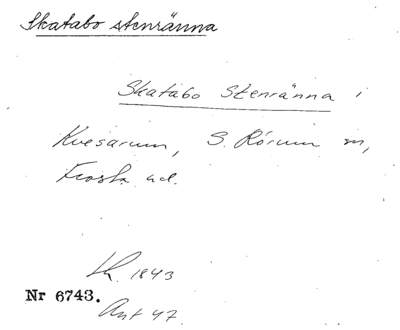 Skatabo stenränna
Skatabo Stenränna i
Kvesarum, S. Rörum sn,
Frosta hd.
Lh. 1843
Nr 6743.
Ant 47